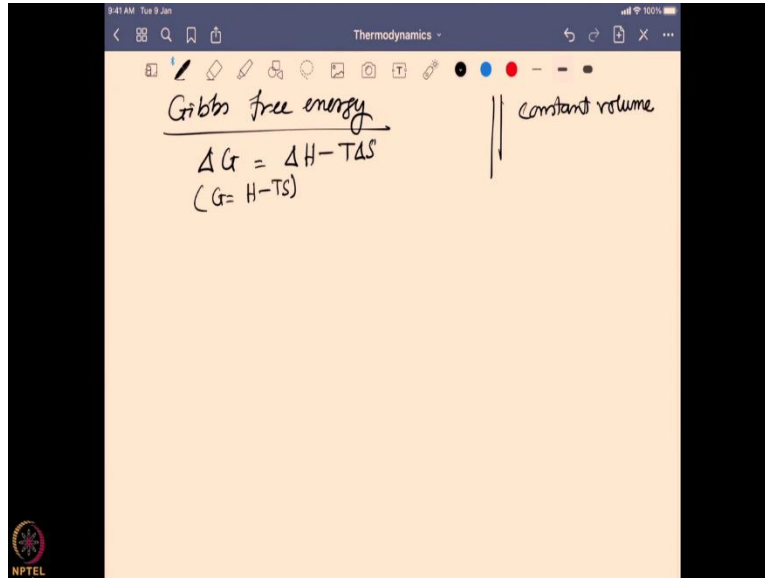 9:41 AM Tue 9 Jan
100%
Thermodynamics
T
Gibbs free energy
ΔG = ΔH-TΔS
(G= H-TS)
constant volume
NPTEL